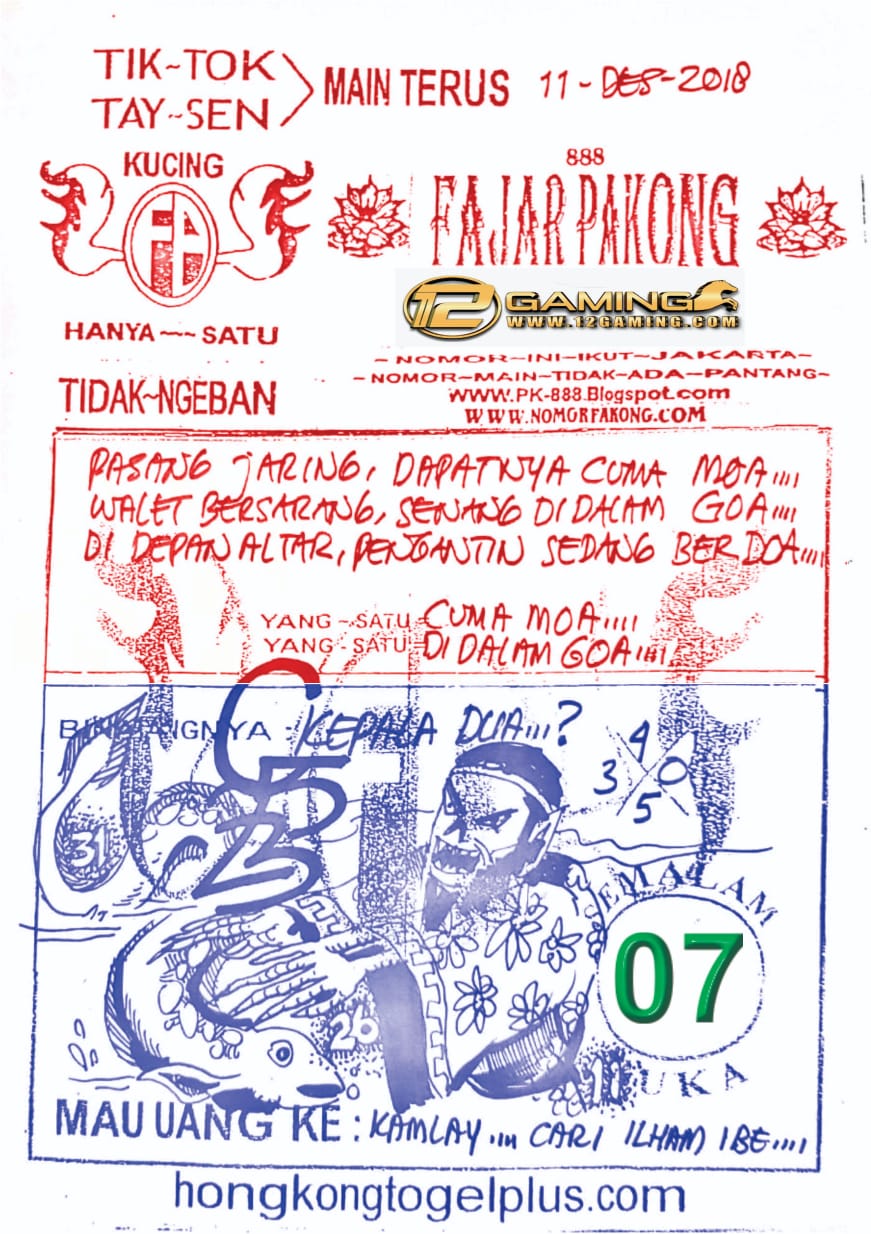 TIK~TOK
TAY~SEN
MAIN TERUS 11-DES-2018
KUCING
FP
888
FAJAR PAKONG
12 GAMING
WWW.12GAMING.COM
HANYA~~SATU
~NOMOR~INI~IKUT~JAKARTA~
~NOMOR~MAIN~TIDAK~ADA~PANTANG~
WWW.PK-888.Blogspot.com
WWW.NOMORPAKONG.COM
TIDAK~NGEBAN
PASANG JARING, DAPATNYA CUMA MOA....
WALET BERSARANG, SENANG DIDALAM GOA....
DI DEPAN ALTAR, PENGANTIN SEDANG BERDOA....
YANG~SATU=CUMA MOA....
YANG-SATU=DIDALAM GOA....
BINATANGNYA - KEPALA DUA...?
4
3 0
5
31
SEMALAM
07
BUKA
26
MAU UANG KE: KAMLAY.... CARI ILHAM IBE....
hongkongtogelplus.com